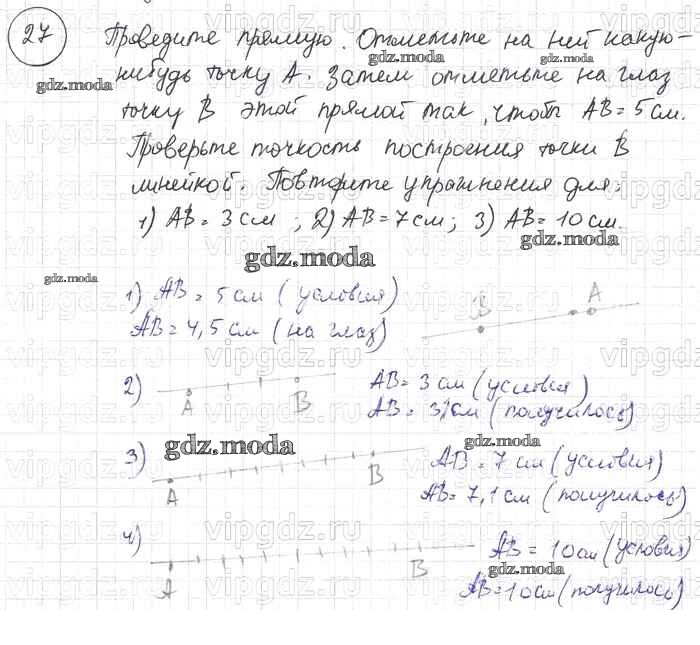 27
Проведите прямую. Отметьте на ней какую-
нибудь точку А. Затем отметьте на глаз
точку В этой прямой так, чтобы АВ = 5 см.
Проверьте точность построения точки В
линейкой. Повторите упражнения для:
1) АВ = 3 см ; 2) АВ = 7 см ; 3) АВ = 10 см.
gdz.moda
1) АВ = 5 см (условия)
АВ = 4,5 см (на глаз)
В А
2) А В
АВ = 3 см (условия)
АВ = 3,1 см (получилось)
3) А В
АВ = 7 см (условия)
АВ = 7,1 см (получилось)
4) А В
АВ = 10 см (условия)
АВ = 10 см (получилось)
gdz.moda
vipgdz.ru